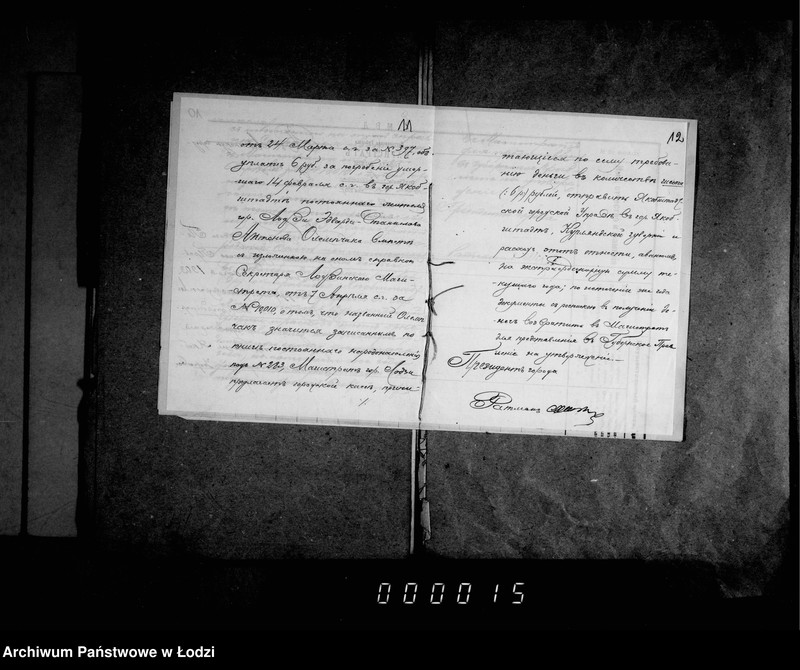 11
отъ 24 Марта с.г. за № 397, объ
уплатѣ 6 руб. за погребеніе умер-
шаго 14 февраля с.г. въ гор. Якоб-
штадтѣ постояннаго жителя
гор. Лодзи, Эдварда-Станислава
Антонова Олейничака вмѣстѣ
съ сдѣланною на ономъ справкою
Секретаря Лодзинскаго Маги-
страта, отъ 7 Апрѣля с.г. за
№ о томъ, что названный Олейни-
чакъ значится записаннымъ по
книгѣ постояннаго народонаселенія
подъ № 223, Магистратъ гор. Лодзи
предлагаетъ городской кассѣ, причи-
12
тающіеся по сему требова-
нію деньги въ количествѣ шести
(: 6 р:) рублей, отправить Якобштадт-
ской городской Управѣ въ гор. Якоб-
штадтъ, Курляндской губерніи и
расходъ этотъ отнести, авансомъ
на сумму те-
кущаго года; по истеченіи же года
документъ съ роспискою въ полученіи де-
негъ возвратить въ Магистратъ
для представленія въ Губернское Прав-
леніе на утвержденіе.
Президентъ города
Ратманъ
000015
Archiwum Państwowe w Łodzi